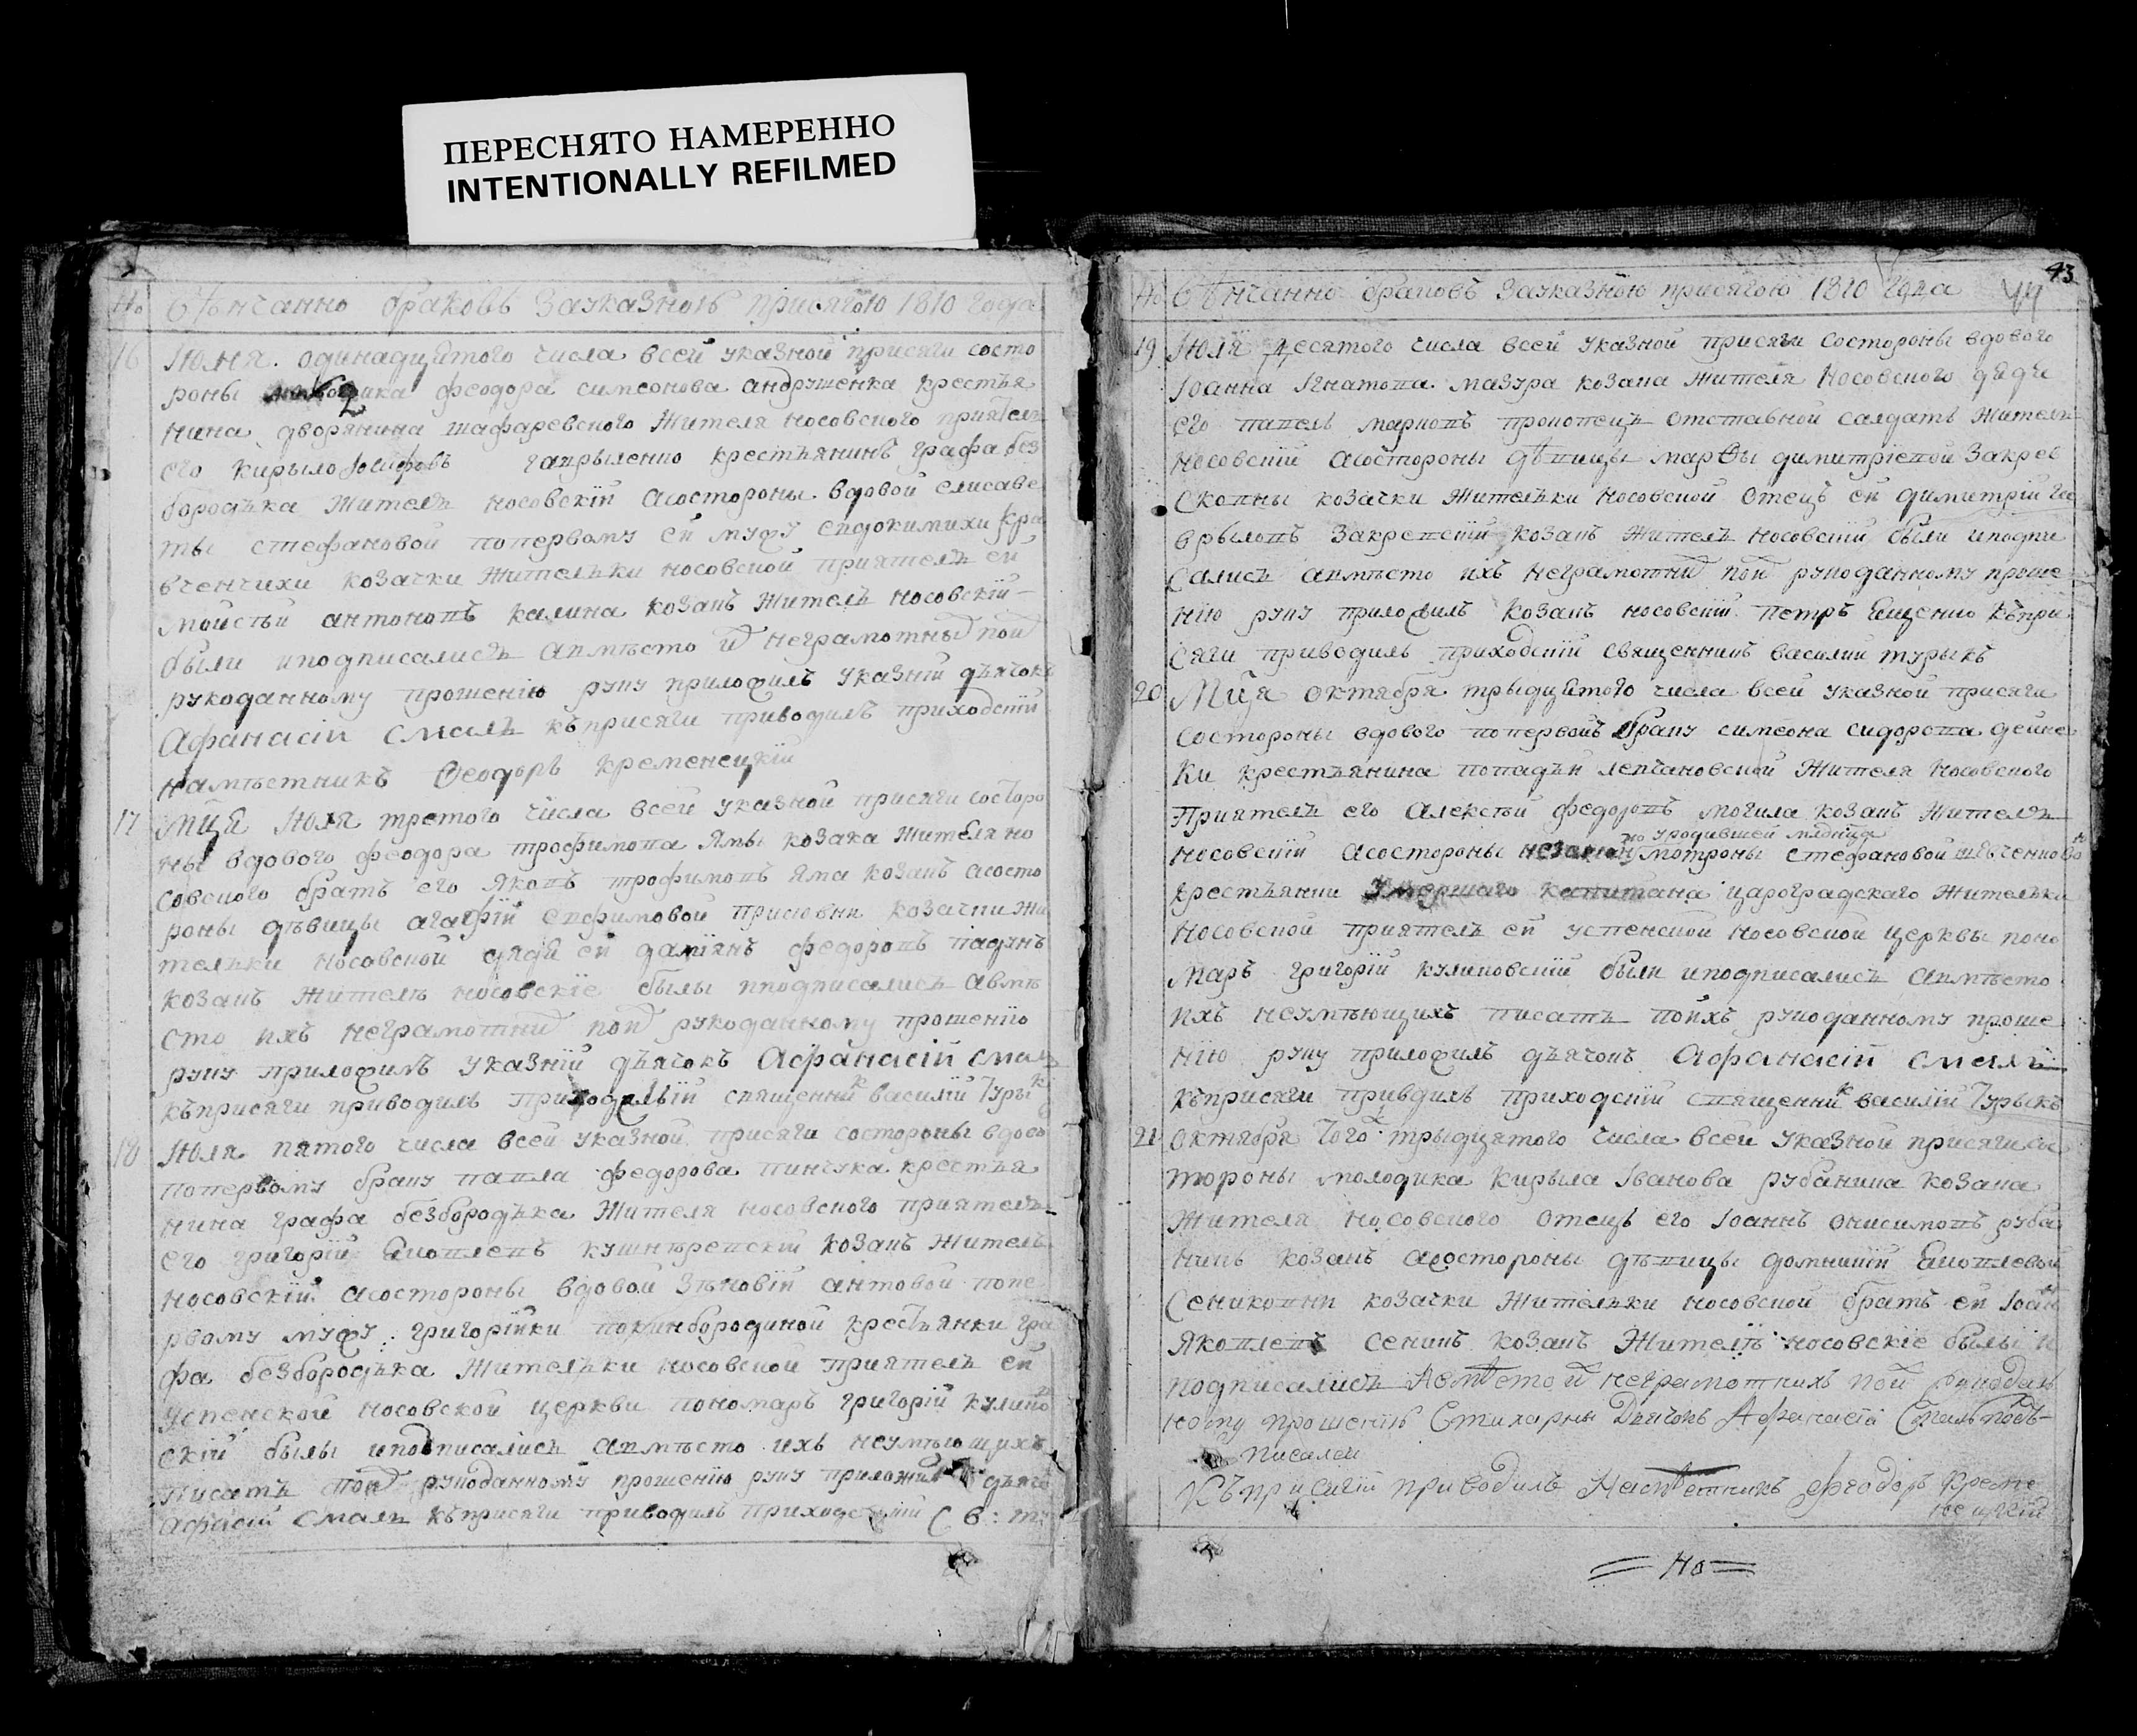 ПЕРЕСНЯТО НАМЕРЕННО
INTENTIONALLY REFILMED
No Вѣнчанно браковъ Зауказною присягою 1810 года
16 Июня одинадцятого числа всей указной присяги состо
роны феодора симеонова андрушенка крестья
нина дворянина шафаревского Жителя носовского приятель
его кирыло Іосифовъ гаврыленко крестьянинъ графа без
бородька Жителъ носовскій асостороны вдовой елисаве
ты стефановой попервому ей мужу евдокимихи кра
вченчихи козачки Жителъки носовской приятелъ ей
мойсѣй антоновъ калина козакъ Жителъ носовскій
были иподписалисъ авмѣсто и неграмотны под
рукоданному прошенію руку приложилъ указній дъячокъ
Афанасій Смалъ къприсяги приводилъ приходскій
намѣстникъ Ѳеодоръ кременецкій
17 Мця Июля третого числа всей указной присяги состоро
ны вдового феодора трофимова Ямы козака жителя но
совского братъ его яковъ трофимовъ яма козакъ асосто
роны дѣвицы агафіи ефимовой козачки жи
телъки носовской дядя ей даміянъ федоровъ
козакъ Жителѣ носовскіе былы иподписалисъ авмѣ
сто ихъ неграмотни под рукоданному прошенію
руку приложилъ указній дъячокъ Афанасій смалъ
къприсяги приводилъ приходскій священник василій Турык
18 Июля пятого числа всей указной присяги состороны вдово
попервому браку павла федорова пинчука крестья
нина графа безбородька Жителя носовского приятелъ
его григорій яковлевъ кушнѣревскій козакъ Жителъ
носовскій асостороны вдовой Зѣновіи антовой попе
рвому мужу григорійки крестьянки гра
фа безбородька Жителъки носовской приятелъ ей
успенской носовской церкви пономаръ григорій кулико
скій былы иподписалисъ авмѣсто ихъ неумѣющихъ
писатъ под рукоданному прошенію руку приложил дъячо
афасій Смалъ къприсяги приводилъ приходскій С в: т:
43
No Вѣнчанно браковъ Зауказною присягою 1810 года 44
19 Июля десятого числа всей указной присяги состороны вдового
Іоанна Игнатова мазура козака жителя Носовского дядъ
его павелъ марковъ отставной салдатъ жителъ
носовскій асостороны дѣвицы марѳы димитріевой Закрев
Сковны козачки Жителъки носовской Отецъ ей димитрій га
врыловъ Закревскій козакъ жителъ носовскій были иподпи
салисъ авмѣсто ихъ неграмотни под рукоданному проше
нію руку приложилъ козакъ носовскій петръ ященко къпри
сяги приводилъ приходскій священникъ василий турыкъ
20 Мця октября трыдцятого числа всей указной присяги
состороны вдового попервомъ браку симеона сидорова дейне
ки крестьянина попадъи левчановской Жителя носовского
Приятелъ его алексѣй федоровъ могила козакъ жителъ
носовскій асостороны мотроны стефановой шевченково
крестьянки капитана цароградскаго жителъки
носовской приятелъ ей успенской носовской церквы поно
маръ григорій куликовскій были иподписалисъ авмѣсто
ихъ неумѣющихъ писатъ поихъ рукоданному проше
нію руку приложилъ дъячокъ афанасій смалъ
къприсяги привдилъ приходскій священник василій Турыкъ
21 октября того трыдцятого числа всей указной присяги со
тороны молодика кирыла Іванова рубанина козака
жителя носовского отецъ его Іоаннъ онисимовъ руба
нинъ козакъ асостороны дѣвицы домникіи яковлевой
Сениковни козачки жителъки носовской братъ ей Іоан
яковлевъ сеникъ козакъ жителѣ носовскіе былы и
подписалисъ Авмѣсто и неграмотнихъ под рукодан
ному прошенію Стихарны Дячокъ Афанасій Смалъ подъ-
писалси
Къприсягіи приводилъ Намѣстникъ феодоръ Креме
нецкій
= Но =